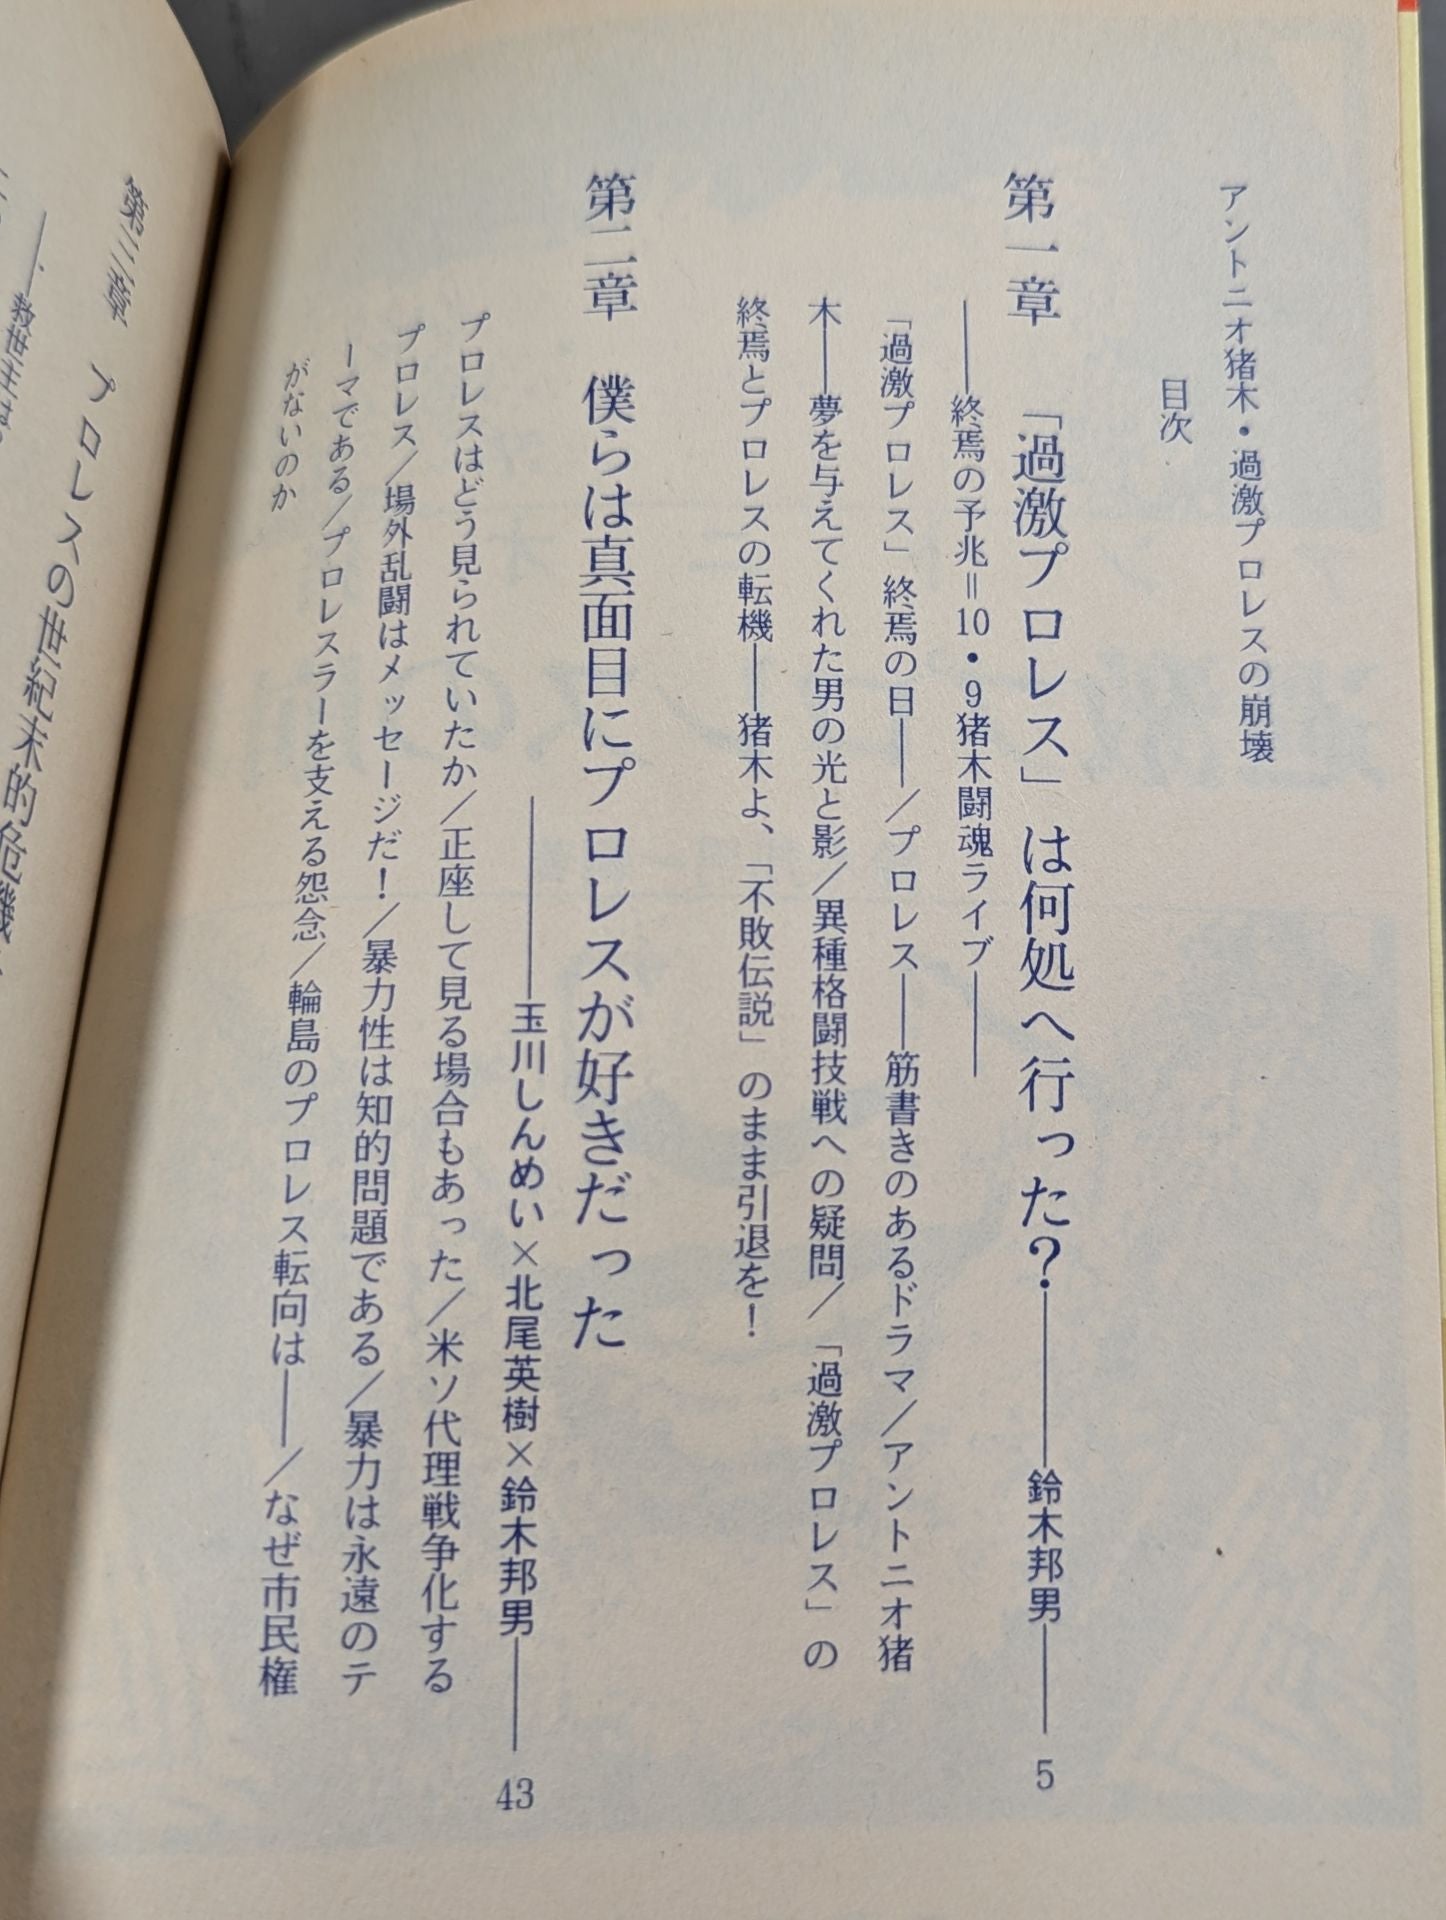 アントニオ猪木・過激プロレスの崩壊
目次
第一章　「過激プロレス」は何処へ行った？――鈴木邦男――5
――終焉の予兆＝10・9猪木闘魂ライブ――
「過激プロレス」終焉の日――／プロレス――筋書きのあるドラマ／アントニオ猪
木――夢を与えてくれた男の光と影／異種格闘技戦への疑問／「過激プロレス」の
終焉とプロレスの転機――猪木よ、「不敗伝説」のまま引退を！
第二章　僕らは真面目にプロレスが好きだった
――玉川しんめい×北尾英樹×鈴木邦男――43
プロレスはどう見られていたか／正座して見る場合もあった／米ソ代理戦争化する
プロレス／場外乱闘はメッセージだ！／暴力性は知的問題である／暴力は永遠のテ
ーマである／プロレスラーを支える怨念／輪島のプロレス転向は――／なぜ市民権
がないのか
第三章　プロレスの世紀末的危機
――救世主は